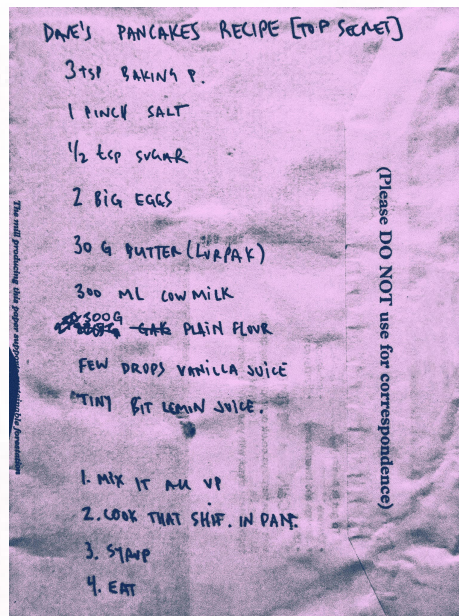 DAVE'S PANCAKES RECIPE [TOP SECRET]
3 tsp BAKING P.
1 PINCH SALT
1/2 tsp SUGAR
2 BIG EGGS
30 G BUTTER (LURPAK)
300 ML COW MILK
300G PLAIN FLOUR
FEW DROPS VANILLA JUICE
TINY BIT LEMON JUICE.
1. MIX IT ALL UP
2. COOK THAT SHIT. IN PAN.
3. SYRUP
4. EAT
(Please DO NOT use for correspondence)
The mill producing this paper supports sustainable forestation